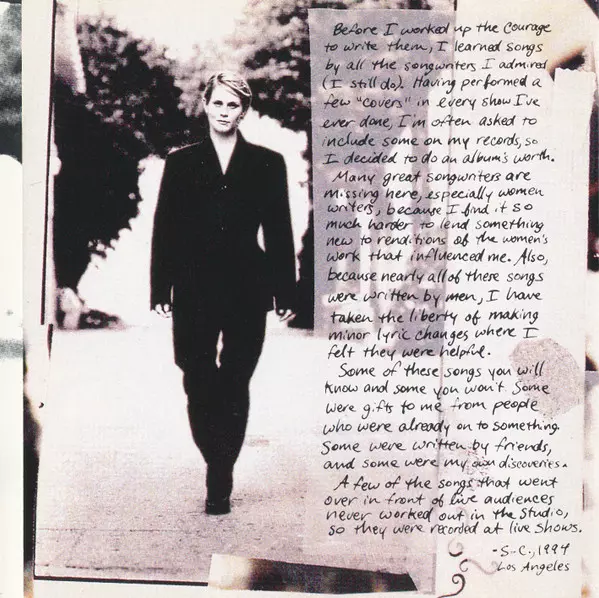 Before I worked up the courage
to write them, I learned songs
by all the songwriters I admired
(I still do). Having performed a
few "covers" in every show I've
ever done, I'm often asked to
include some on my records, so
I decided to do an album's worth.
Many great songwriters are
missing here, especially women
writers, because I find it so
much harder to lend something
new to renditions of the women's
work that influenced me. Also,
because nearly all of these songs
were written by men, I have
taken the liberty of making
minor lyric changes where I
felt they were helpful.
Some of these songs you will
know and some you won't. Some
were gifts to me from people
who were already on to something.
Some were written by friends,
and some were my own discoveries.
A few of the songs that went
over in front of live audiences
never worked out in the studio,
so they were recorded at live shows.
-S.C., 1994
Los Angeles